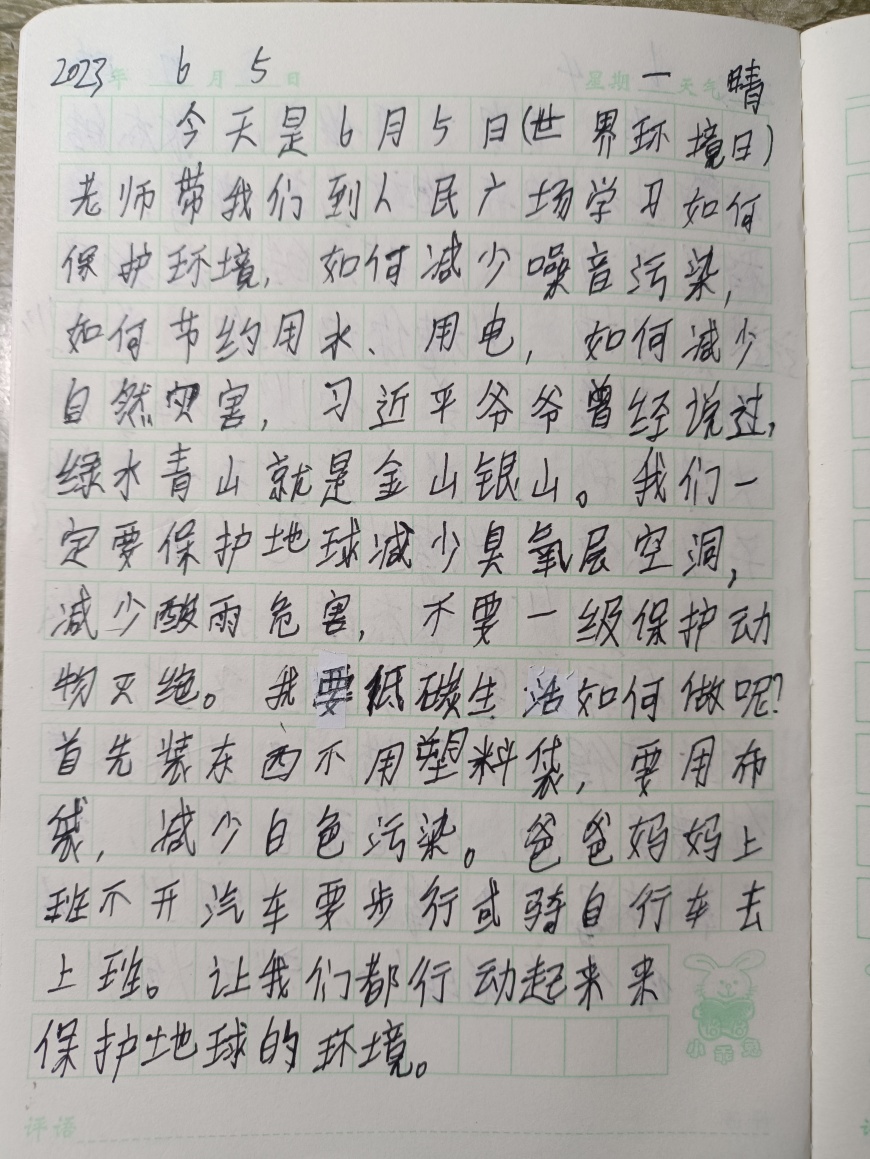 2023年 6月 5日 星期 一 天气 晴
今天是6月5日(世界环境日)
老师带我们到人民广场学习如何
保护环境,如何减少噪音污染,
如何节约用水、用电,如何减少
自然灾害,习近平爷爷曾经说过,
绿水青山就是金山银山。我们一
定要保护地球减少臭氧层空洞,
减少酸雨危害,不要一级保护动
物灭绝。我要低碳生活如何做呢?
首先装东西不用塑料袋,要用布
袋,减少白色污染。爸爸妈妈上
班不开汽车要步行或骑自行车去
上班。让我们都行动起来来
保护地球的环境。
小乖兔
评语